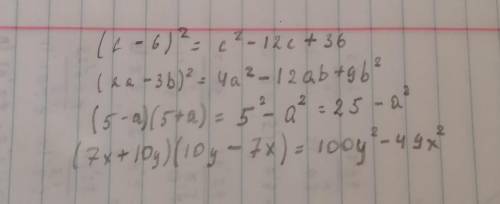 (c - 6)² = c² - 12c + 36
(2a - 3b)² = 4a² - 12ab + 9b²
(5 - a)(5 + a) = 5² - a² = 25 - a²
(7x + 10y)(10y - 7x) = 100y² - 49x²